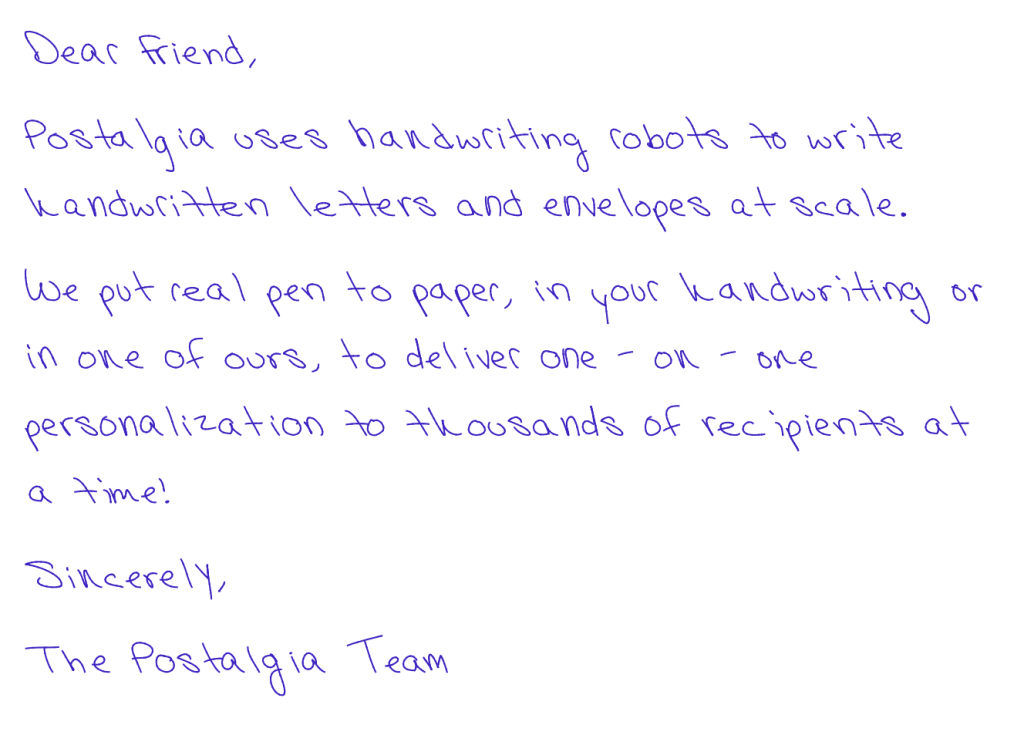 Dear Friend,
Postalgia uses handwriting robots to write
handwritten letters and envelopes at scale.
We put real pen to paper, in your handwriting or
in one of ours, to deliver one - on - one
personalization to thousands of recipients at
a time!
Sincerely,
The Postalgia Team